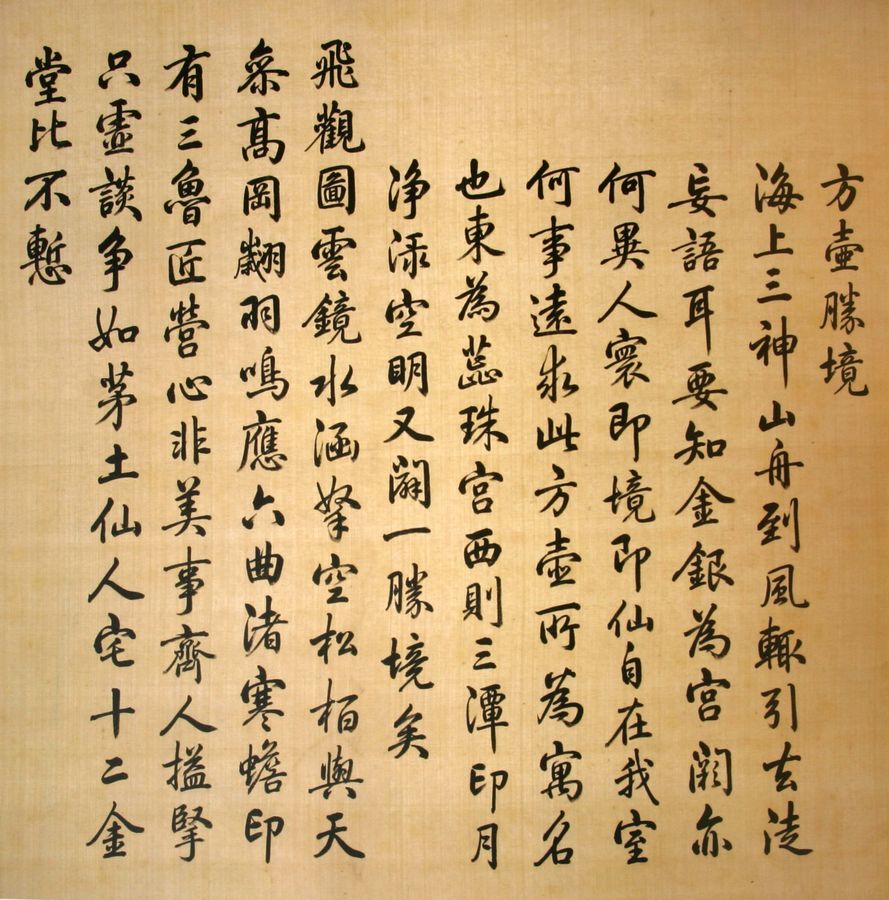 方壺勝境
海上三神山舟到風輙引去徒
妄語耳要知金銀為宮闕亦
何異人寰即境即仙自在我室
何事遠求此方壺所為寓名
也東為蕊珠宮西則三潭印月
淨渌空明又闢一勝境矣
飛觀圖雲鏡水涵拏空松栢與天
叅髙岡翽羽鳴應六曲渚寒蟾印
有三魯匠營心非美事齊人搤掔
只虛談争如茅土仙人宅十二金
堂比不慙